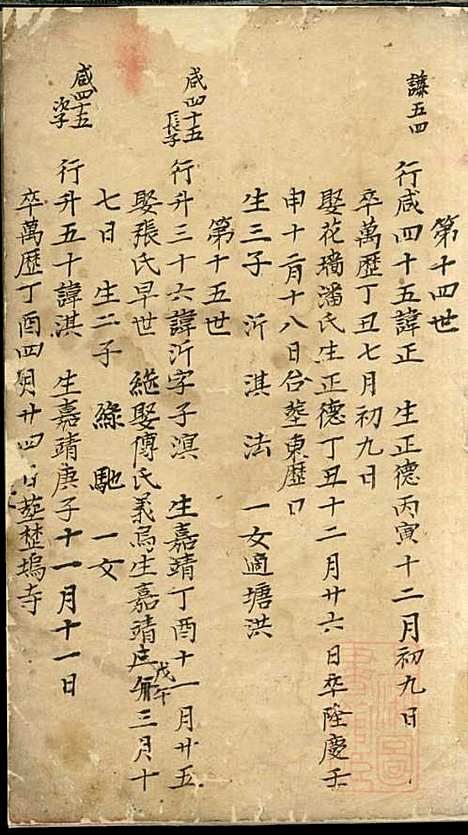 第十四世
謙五四
行咸四十五諱正 生正德丙寅十二月初九日
卒萬歷丁丑七月初九日
娶花墻潘氏生正德丁丑十二月廿六日卒隆慶壬
申十二月十八日合塟東歷口
生三子 沂 淇 法 一女適塘洪
第十五世
咸四十五
長子
行升三十六諱沂字子溟 生嘉靖丁酉十一月廿五
娶張氏早世 繼娶傅氏義烏生嘉靖戊午三月十
七日 生二子 綠 馳 一女
咸四十五
次子
行升五十諱淇 生嘉靖庚子十一月十一日
卒萬歷丁酉四月廿四日塟埜塢寺